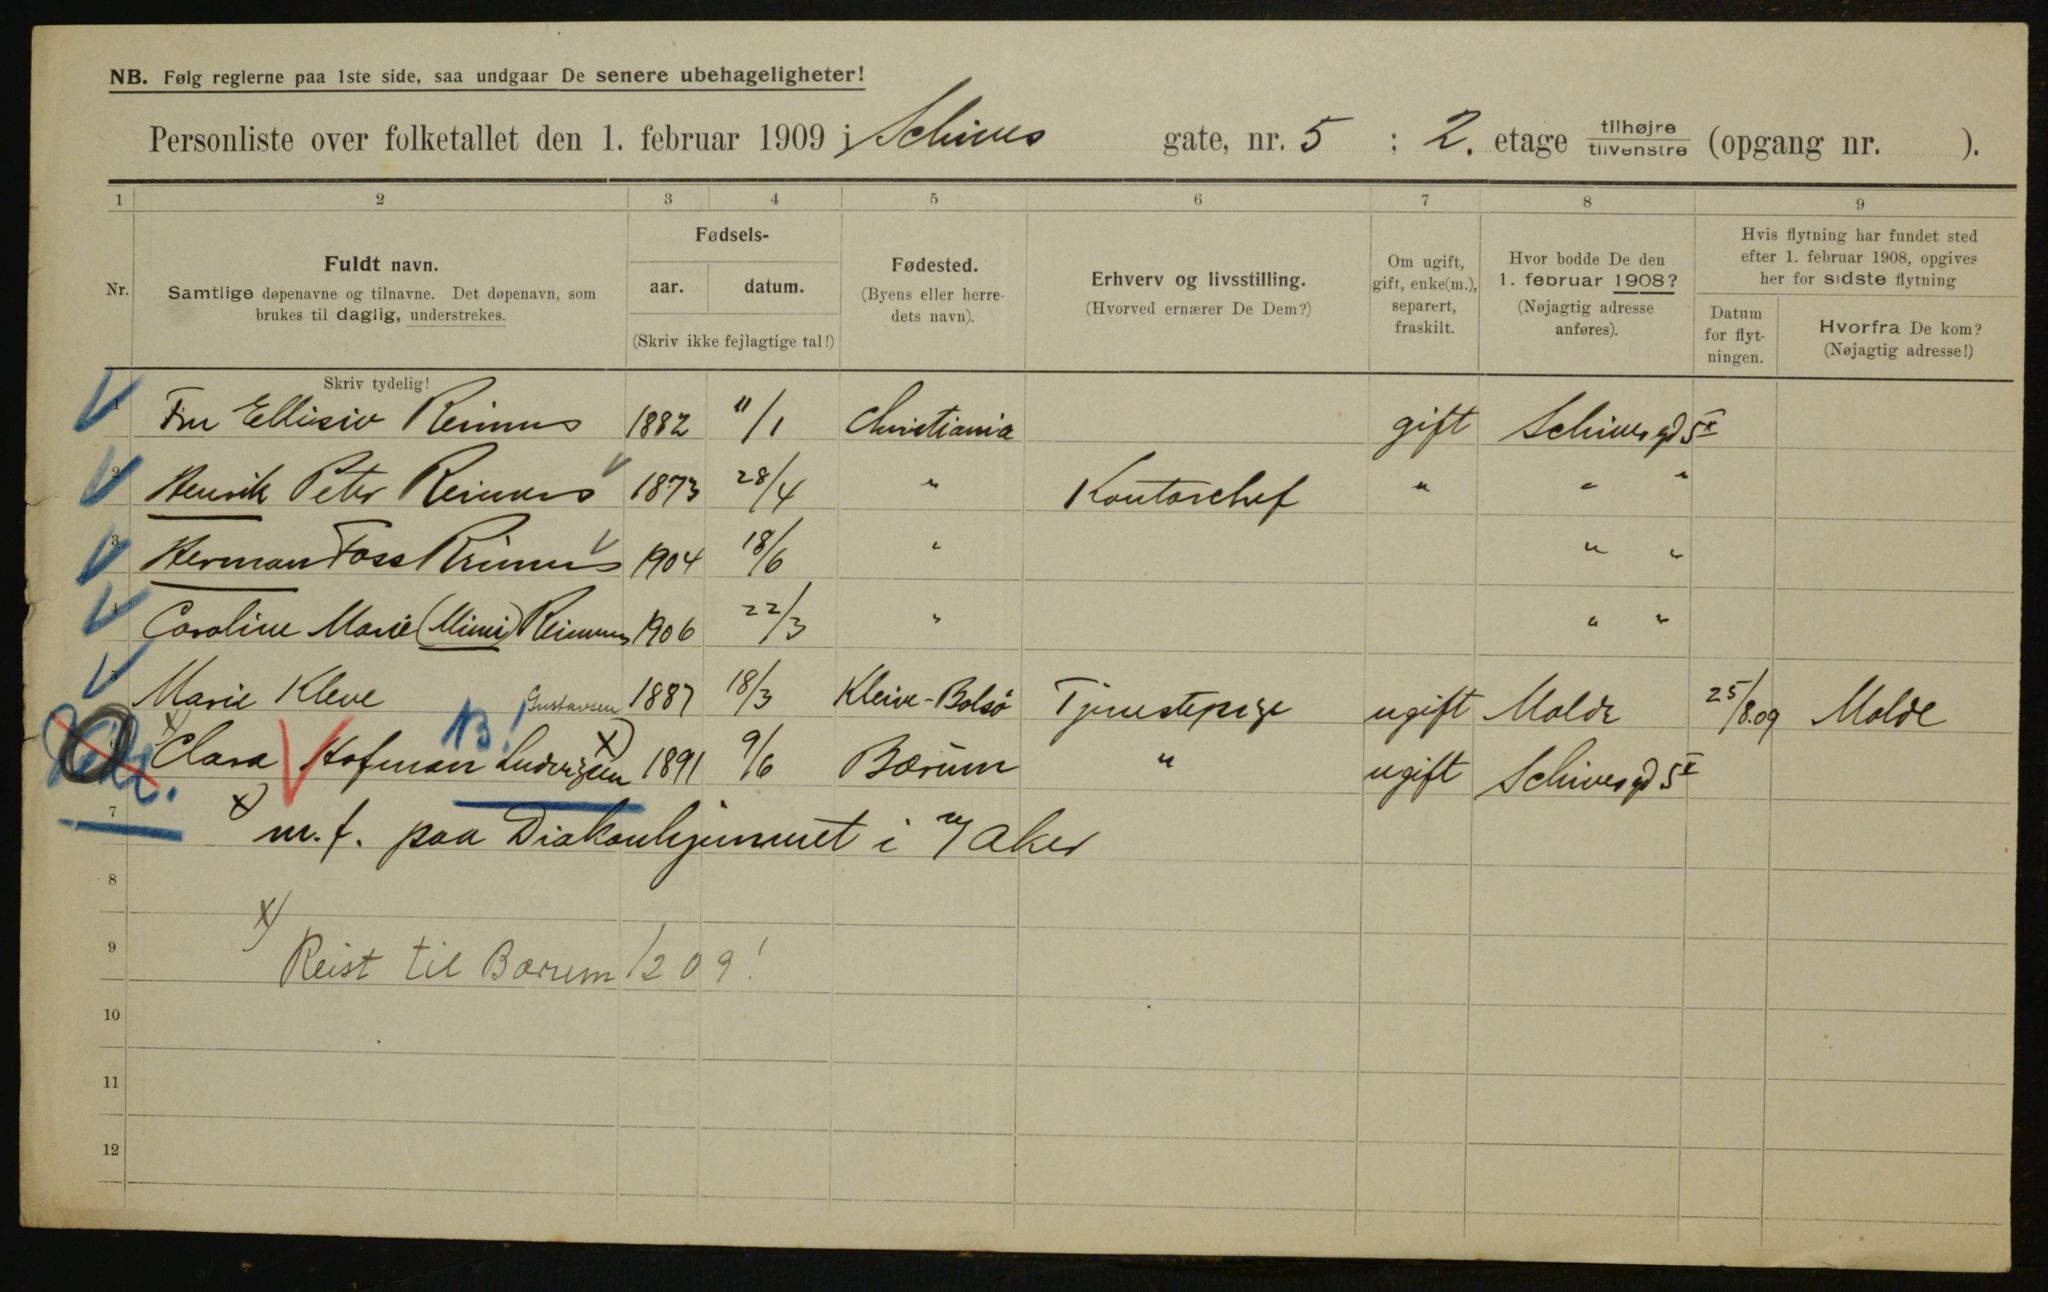 NB. Følg reglerne paa 1ste side, saa undgaar De senere ubehageligheter!
Personliste over folketallet den 1. februar 1909 i Schives gate, nr. 5 ; 2. etage tilhøjre tilvenstre (opgang nr. ).
1 2 3 4 5 6 7 8 9
Nr. Fuldt navn. Samtlige døpenavne og tilnavne. Det døpenavn, som brukes til daglig, understrekes.
Fødsels- aar. datum. (Skriv ikke fejlagtige tal!)
Fødested. (Byens eller herredets navn).
Erhverv og livsstilling. (Hvorved ernærer De Dem?)
Om ugift, gift, enke(m.), separert, fraskilt.
Hvor bodde De den 1. februar 1908? (Nøjagtig adresse anføres).
Hvis flytning har fundet sted efter 1. februar 1908, opgives her for sidste flytning
Datum for flytningen.
Hvorfra De kom? (Nøjagtig adresse!)
Skriv tydelig!
1 Fru Ellisiv Reimers 1882 11/1 Christiania gift Schives gd 5 II
2 Henrik Peter Reimers 1873 28/4 " Kontorchef " " "
3 Herman Foss Reimers 1904 18/6 " " "
4 Caroline Marie (Mimi) Reimers 1906 22/3 " " "
5 Marie Kleve 1887 18/3 Kleive-Bolsø Tjenestepige ugift Molde 25/8.09 Molde
Gustavsen
6 x) Clara Hofman Ludvigsen x) 1891 9/6 Bærum " ugift Schives gd 5 II
7 x) m. f. paa Diakonhjemmet i V Aker
8
9 x) Reist til Bærum 1/2 09!
10
11
12